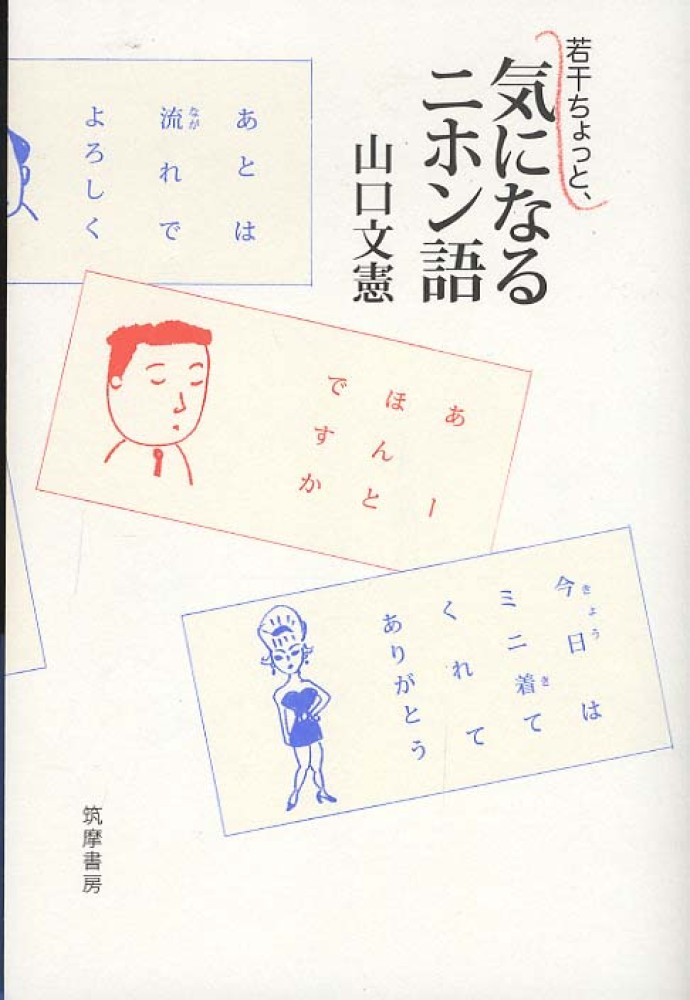 若干ちょっと、
気になる
ニホン語
山口文憲
あとは
流れで
なが
よろしく
あー
ほんと
ですか
今日は
きょう
ミニ着て
き
くれて
ありがとう
筑摩書房